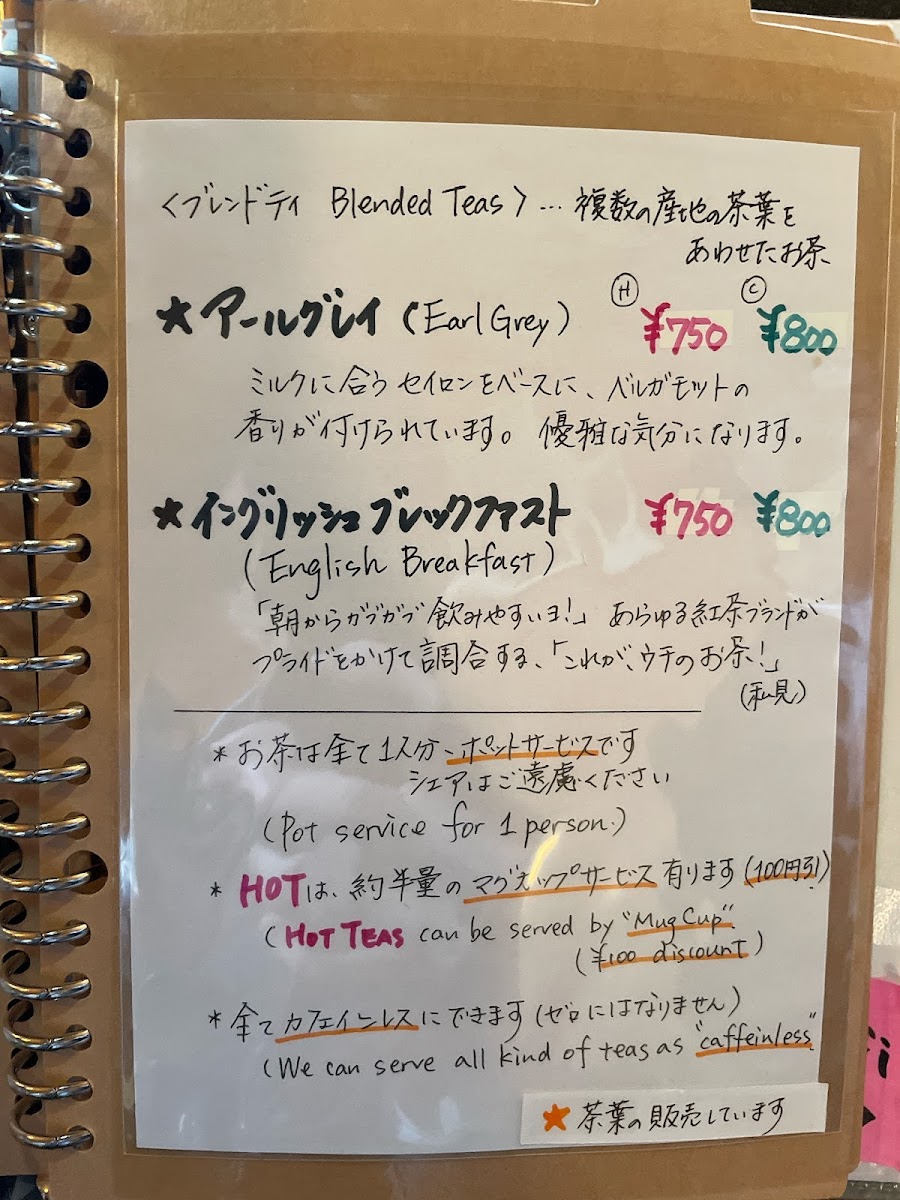 〈ブレンドティ Blended Teas〉… 複数の産地の茶葉を
あわせたお茶
Ⓗ Ⓒ
★アールグレイ (Earl Grey) ¥750 ¥800
ミルクに合うセイロンをベースに、ベルガモットの
香りが付けられています。優雅な気分になります。
★イングリッシュブレックファスト ¥750 ¥800
(English Breakfast)
「朝からガブガブ飲みやすいヨ!」あらゆる紅茶ブランドが
プライドをかけて調合する、「これが、ウチのお茶!」
(私見)
* お茶は全て1人分、ポットサービスです
シェアはご遠慮ください
(Pot service for 1 person.)
* HOTは、約半量のマグカップサービス有ります(100円引)
(HOT TEAS can be served by "Mug Cup"
(¥100 discount)
* 全てカフェインレスにできます(ゼロにはなりません)
(We can serve all kind of teas as "caffeinless"
★ 茶葉の販売しています